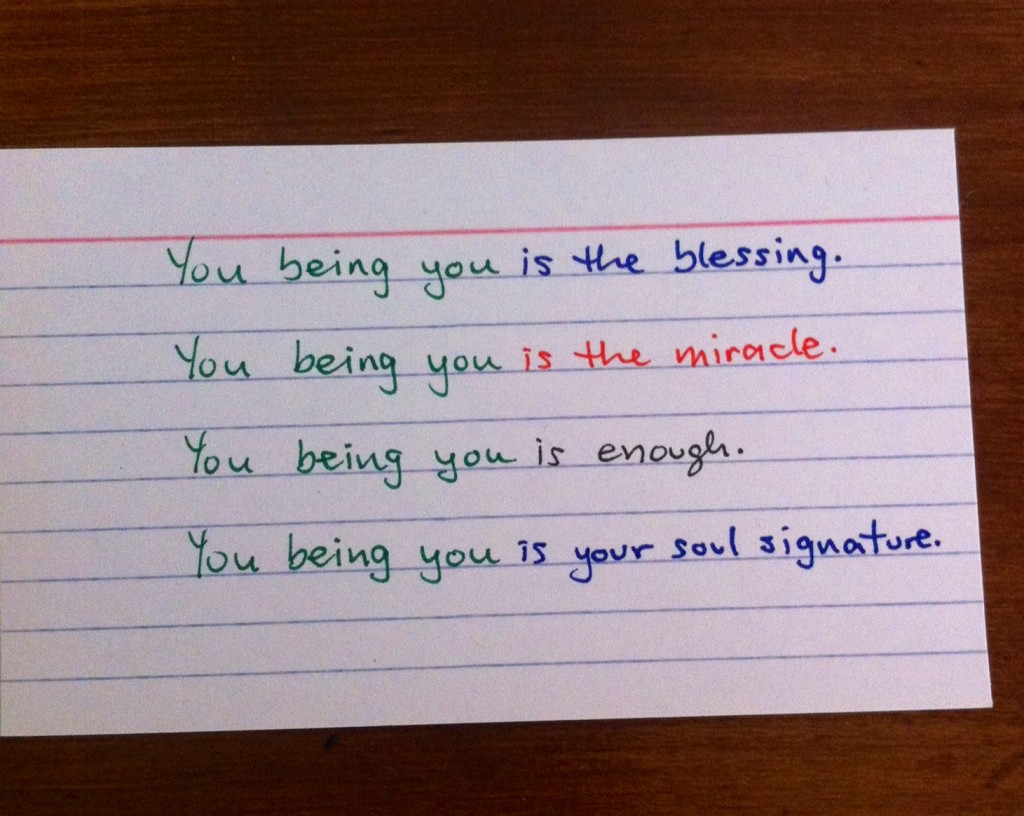 You being you is the blessing.
You being you is the miracle.
You being you is enough.
You being you is your soul signature.